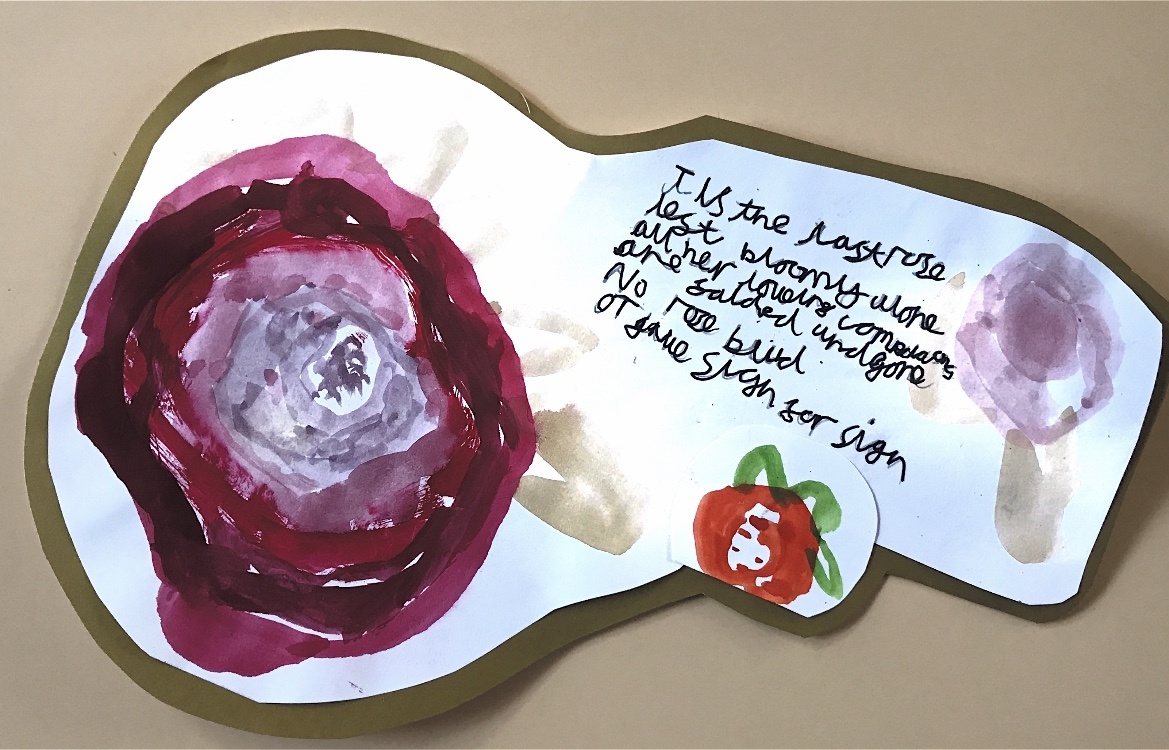 T is the last rose
lest bloomy alone
all her loveing comeduans
are salded und gone
No rose biud
of gave sign for sign